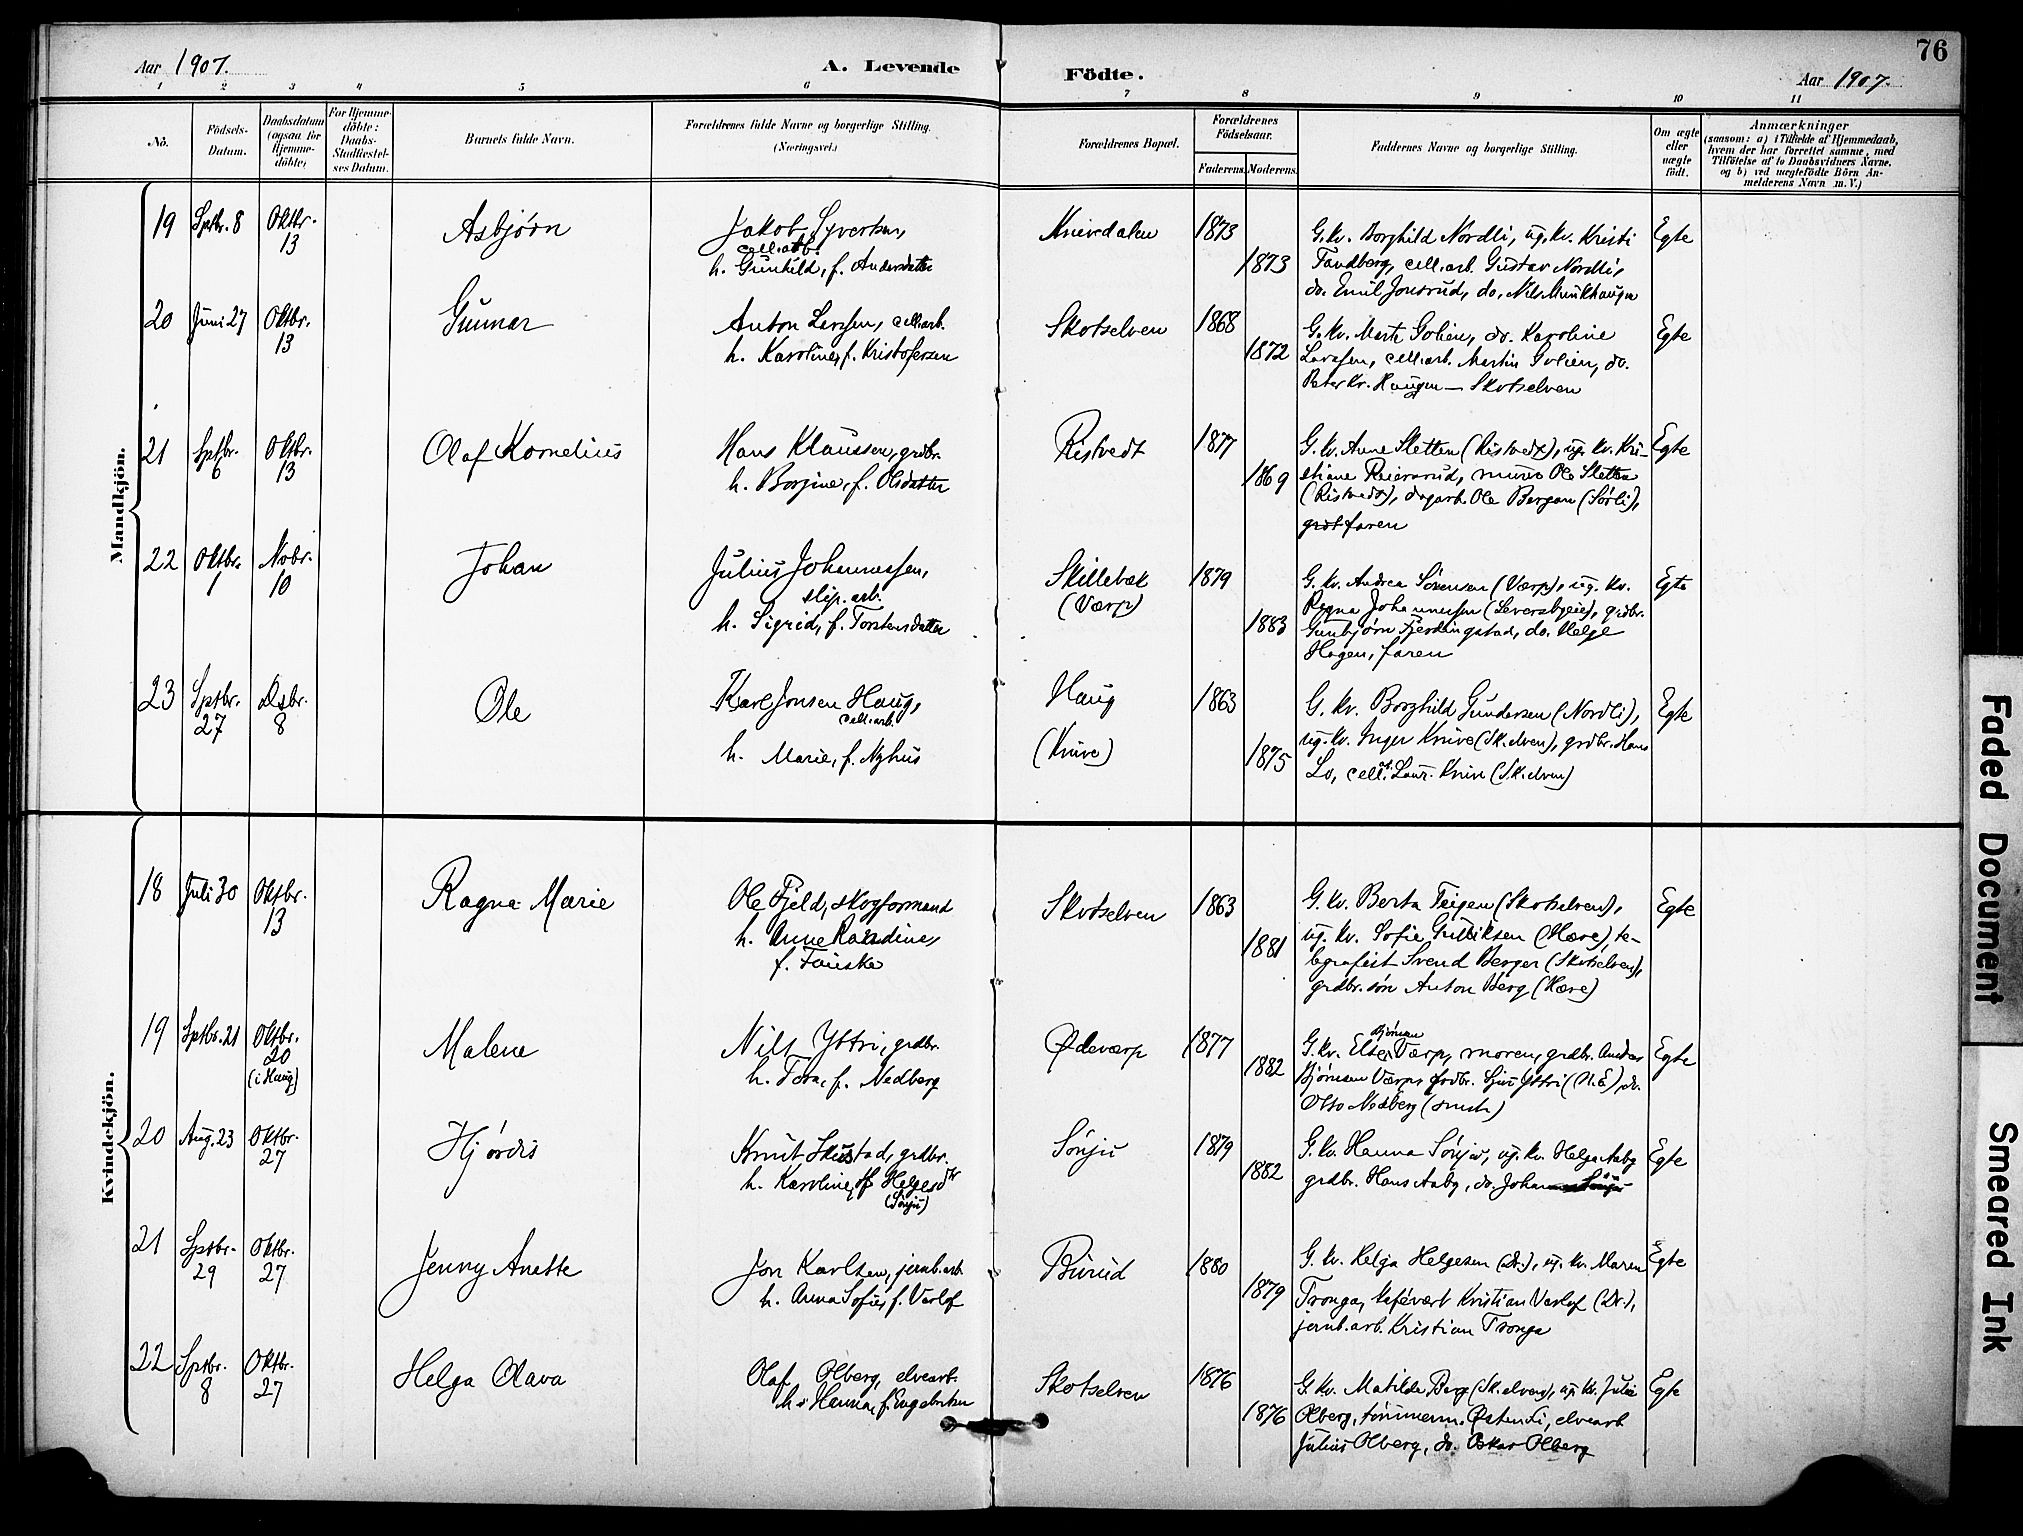 76
Aar 1907.
A. Levende Födte.
Aar 1907.
1 2 3 4 5 6 7 8 9 10 11
No.
Födsels-
Datum.
Daabsdatum
(ogsaa for
Hjemme-
döbte)
For Hjemme-
döbte:
Daabs-
Stadfæstel-
ses Datum.
Barnets fulde Navn.
Forældrenes fulde Navne og borgerlige Stilling.
(Næringsvei.)
Forældrenes Bopæl.
Forældrenes
Födselsaar.
Faderens. Moderens.
Faddernes Navne og borgerlige Stilling.
Om ægte
eller
uægte
födt.
Anmærkninger
(saasom: a) i Tilfælde af Hjemmedaab,
hvem der har forrettet samme, med
Tilföielse af to Daabsvidners Navne,
og b) ved uægtefödte Börn An-
melderens Navn m. V.)
Mandkjön.
19 Sptbr. 8
Oktbr.
13
Asbjørn
Jakob Syversen,
cell.arb.
h. Gunhild, f. Andersdatter
Knivedalen
1873
1873
G. kv. Borghild Nordli, ug. kv. Kristi
Tandberg, cell.arb. Gustav Nordli,
do. Emil Jonsrud, do. Nils Munkhaugen
Egte
20 Juni 27
Oktbr.
13
Gunnar
Anton Larssen, cell.arb.
h. Karoline, f. Kristofersen
Skotselven
1868
1872
G. kv. Marte Golien, do. Karoline
Larssen, cell.arb. Martin Golien, do.
Peter Kr. Haugen — Skotselven
Egte
21 Sptbr.
6
Oktbr.
13
Olaf Kornelius
Hans Klaussen, grdbr.
h. Borgine, f. Olsdatter
Ristvedt
1877
1869
G. kv. Anne Sletten (Ristvedt), ug. kv. Kri-
stiane Reiersrud, murer Ole Sletten
(Ristvedt), dagarb. Ole Bergan (Sørli),
grdt faren
Egte
22 Oktbr.
1
Nobr.
10
Johan
Julius Johannessen,
slip.arb.
h. Sigrid, f. Torstensdatter
Skillebæk
(Værp)
1879
1883
G. kv. Andrea Sørensen (Værp), ug. kv.
Ragna Johannessen (Leversbyeie), grdbr.
Gunbjørn Fjerdingstad, do. Helge
Hagen, faren
Egte
23 Sptbr.
27
Dsbr.
8
Ole
Karl Jonsen Haug,
cell.arb.
h. Marie, f. Nyhus
Haug
(Knive)
1863
1875
G. kv. Borghild Gundersen (Nordli),
ug. kv. Inger Knive (Sk.elven), grdbr. Hans
Lo, cell.at. Laur. Knive (Sk.elven)
Egte
Kvindekjön.
18 Juli 30
Oktbr.
13
Ragna Marie
Ole Fjeld, skogformand
h. Anne Randine,
f. Fauske
Skotselven
1863
1881
G. kv. Berta Teigen (Skotselven),
ug. kv. Sofie Gulliksen (Hære), te-
legrafist Svend Berger (Skotselven),
grdbr.søn Anton Berg (Hære)
Egte
19 Sptbr. 21
Oktbr.
20
(i Haug)
Malene
Nils Ytteri, grdbr.
h. Tora, f. Nedberg
Ødeværp
1877
1882
Bjørnsen
G. kv. Else Værp, moren, grdbr. Anders
Bjørnsen Værp, grdbr. Sjur Ytteri (N.E), do.
Otto Nedberg (smst.)
Egte
20 Aug. 23
Oktbr.
27
Hjørdis
Knut Skustad, grdbr.
h. Karoline, f. Helgesdtr
(Sønju)
Sønju
1879
1882
G. kv. Hanna Sønju, ug. kv. Helga Aaby
grdbr. Hans Aaby, do. Johan
Egte
21 Sptbr.
29
Oktbr.
27
Jenny Anette
Jon Karlsen, jernb.arb.
h. Anna Sofie, f. Varlof
Burud
1880
1879
G. kv. Helga Helgesen (Dr.), ug. kv. Maren
Tronga, kafévært Kristian Varlof (Dr.),
jernb.arb. Kristian Tronga
Egte
22 Sptbr.
8
Oktbr.
27
Helga Olava
Olaf Olberg, elvearb.
h. Hanna, f. Engebretsen
Skotselven
1876
1876
G. kv. Matilde Berg (Sk.elven), ug. kv. Julie
Olberg, tømmerm. Østen Li, elvearb
Julius Olberg, do. Oskar Olberg
Egte
Faded Document
Smeared Ink